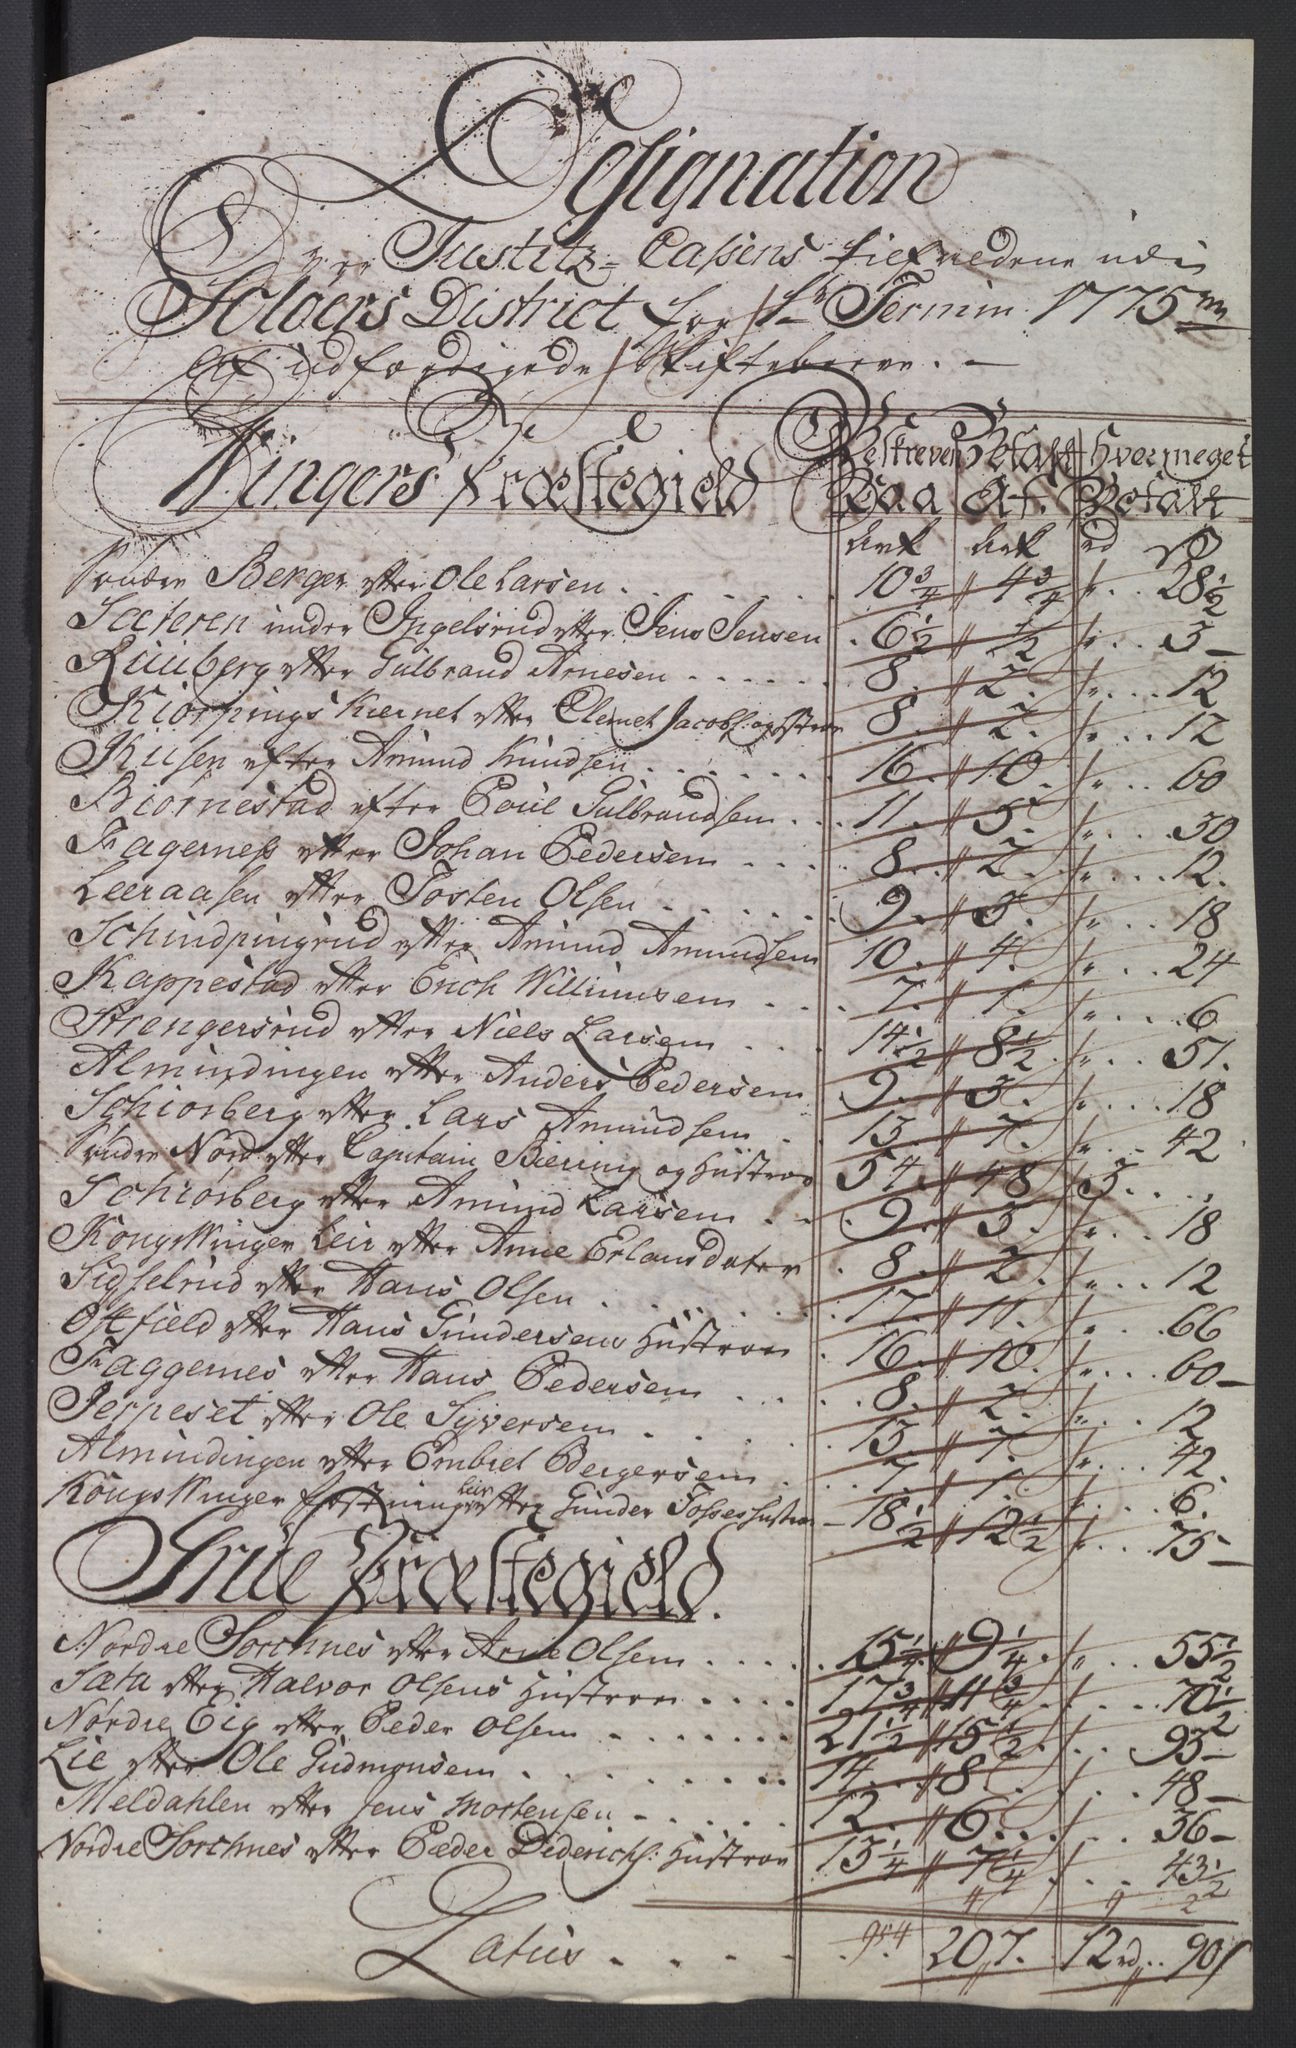 Designation
Over Justitz=Cassens tiefaldene udi
Soløers District for 1ste Termin 1775
Af udfærdigede Skiftebreve. –
Wingers Præstegield Beskreven Betalt Hvormeget
Paa Af. Betalt
Ark Ark rd ß
Søndre Berger efter Ole Larsen . . . 10 3/4 4 3/4 " . . 28 1/2
Sæteren under Ingelsrud efter Jens Jensen . 6 1/2 1/2 " . . 3 –
Ruuberg efter Gulbrand Arnesen . . . . . . 8. 2. " . . . 12
Kiørpings Kiernet efter Clemet Jacobs: og Hustroe 8. 2. " . . . 12
Kusen efter Amund Knudsen . . . . . . . 16. 10. " . . . 60
Biørnestad efter Poul Gulbrandsen . . . 11. 5. " . . . 30
Fagerness efter Johan Pedersen . . . . 8. . 2. " . . . 12.
Leeraasen efter Tosten Olsen . . . . . . 9. . 3. " . . . 18
Schindpingrud efter Amund Amundsen 10. 4. " . . . 24
Kappestad efter Erich Williumsen . . . . 7. 1. " . . . . 6
Strengersrud efter Niels Larsen . . . 14 1/2 8 1/2 " . . 51.
Almindingen efter Anders Pedersen 9. 3. " . . . 18
Schiørberg efter Lars Amundsen . 13. 7. " . . . 42
Søndre Nord efter Capitain Biering og Hustroe 54 48 3. . . . .
Schiørberg efter Amund Larsen . . . 9. 3. " . . . 18
Kongswinger Leir efter Anne Erlansdater . 8. 2. " . . . 12
Sidselrud efter Hans Olsen . . . . . . 17. 11. " . . . 66
Ostfield efter Hans Gundersens Hustroe . 16. 10. " . . . 60 –
Faggernes efter Hans Pedersen . . . . . 8. 2. " . . . 12
Jerpeset efter Ole Syversen . . . . . . 13. 7. " . . . 42.
Almindingen efter Embret Bergersen . 7 1 " . . . 6.
Kongswinger Fæstnings Leir efter Gunder Tosses Hustroe – 18 1/2 12 1/2 " . . . 75 –
Grue Præstegield.
Nordre Sorchnes efter Arne Olsen . . . . . . 15 1/4 9 1/4 " . . 55 1/2
Sata efter Halvor Olsens Hustroe . . . . . 17 3/4 11 3/4 . . . . 70 1/2
Nordre Eig efter Peder Olsen . . . . . . . 21 1/2 15 1/2 . . . 93 –
Lie efter Ole Gudmonsen . . . . . . . . 14. . 8 . . . 48 –
Meldahlen efter Jens Mortensen – . . . . 12. . 6. . . . . 36 –
Nordre Sorchnes efter Peder Diderichs: Hustroe 13 1/4 7 1/4 . . . 43 1/2
Latus . . . . . 954 207. 12 rd. . . 90 ß